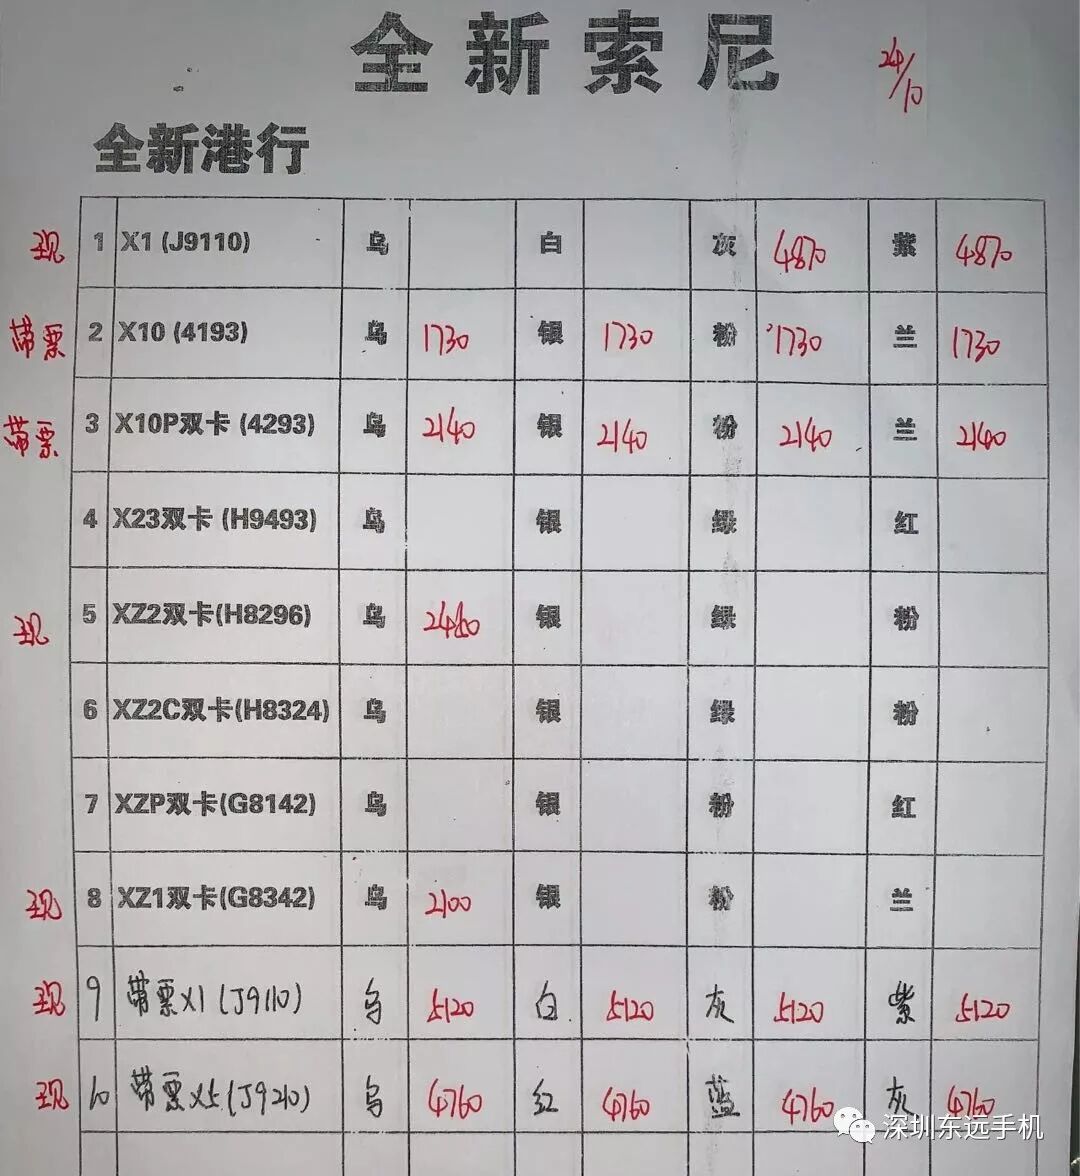 全新索尼
24/10
全新港行
现 1 X1 (J9110) 乌 白 灰 4870 紫 4870
带票 2 X10 (4193) 乌 1730 银 1730 粉 1730 兰 1730
带票 3 X10P双卡 (4293) 乌 2140 银 2140 粉 2140 兰 2140
4 X23双卡 (H9493) 乌 银 绿 红
现 5 XZ2双卡(H8296) 乌 银 绿 粉
6 XZ2C双卡(H8324) 乌 银 绿 粉
7 XZP双卡(G8142) 乌 银 粉 红
现 8 XZ1双卡(G8342) 乌 2100 银 粉 兰
现 9 带票X1 (J9110) 乌 5120 白 5120 灰 5120 紫 5120
现 10 带票X5 (J9210) 乌 4760 红 4760 蓝 4760 灰 4760
深圳东远手机